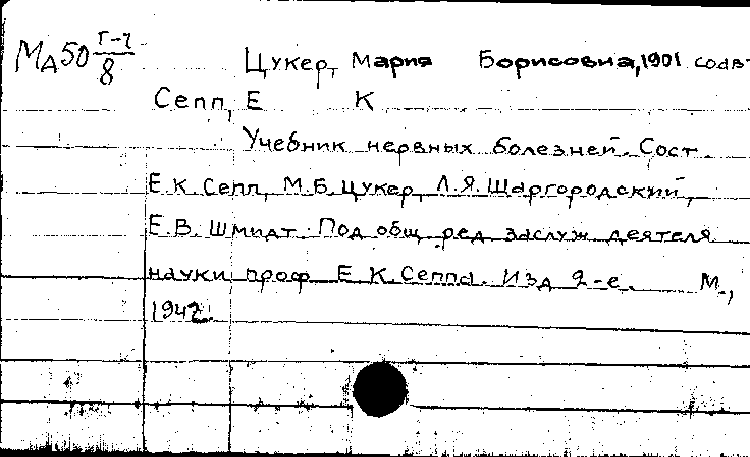 Мд50 Г-7/8
Цукер, Мария Борисовна, 1901 соав-
Сепп, Е К
Учебник нервных болезней. Сост.
Е.К. Сепп, М.Б. Цукер, Л.Я. Шаргородский,
Е.В. Шмидт. Под общ ред. заслуж деятеля
науки проф Е К. Сеппа. Изд 2-е. М.,
1942.